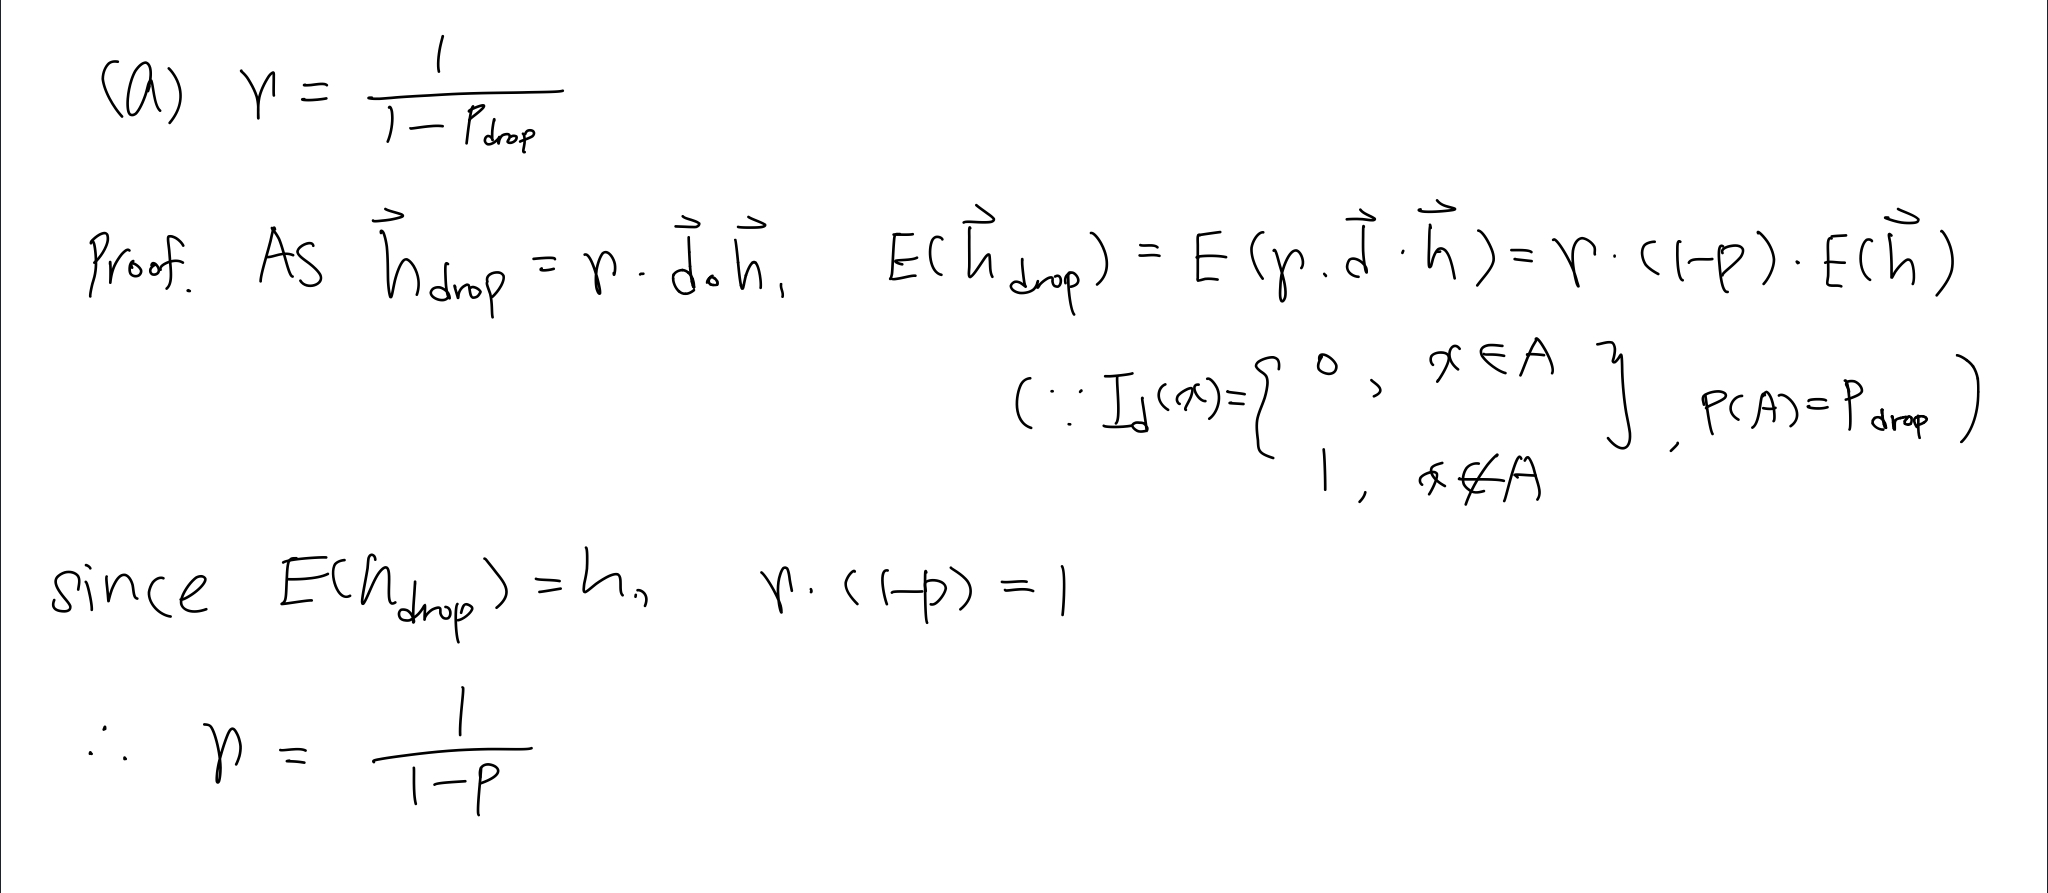 (a) γ = 1 / (1 - P_drop)
Proof. As h⃗_drop = γ · d⃗ ∘ h⃗, E(h⃗_drop) = E(γ · d⃗ · h⃗) = γ · (1-p) · E(h⃗)
(∵ I_d(x) = { 0, x ∈ A
1, x ∉ A }, P(A) = P_drop)
since E(h_drop) = h, γ · (1-p) = 1
∴ γ = 1 / (1-p)